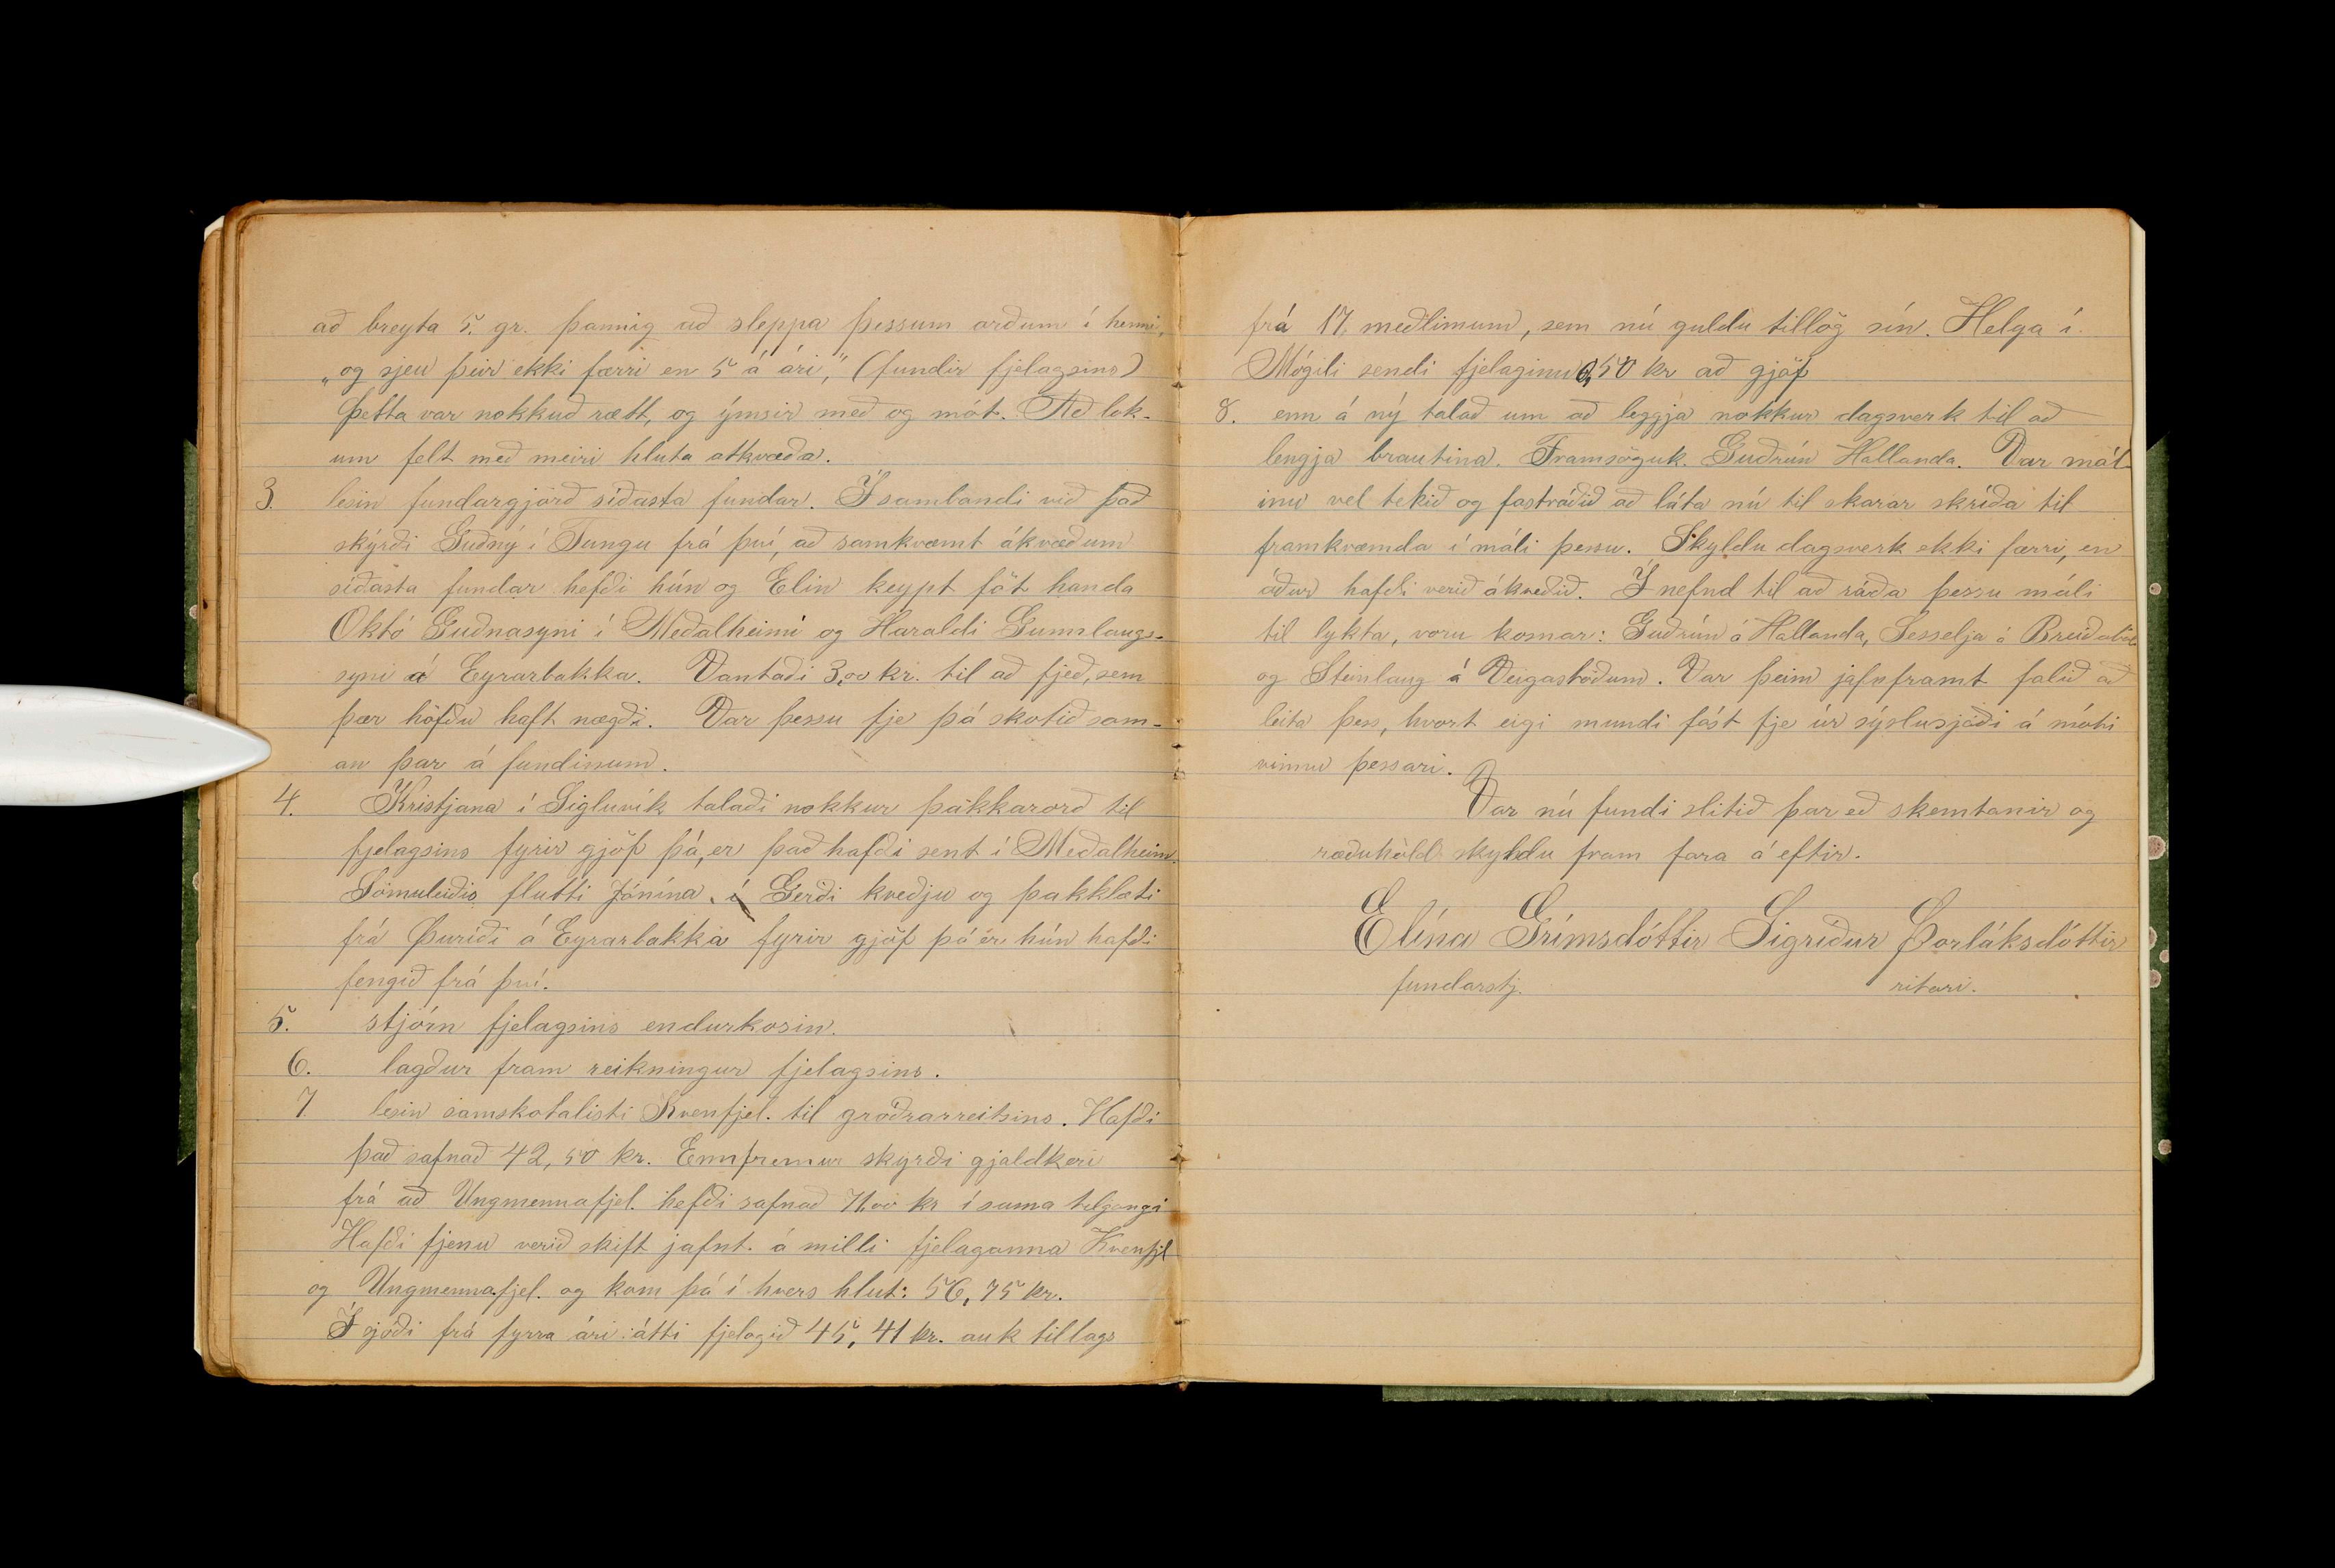 að breyta 5. gr. þannig að sleppa þessum orðum í henni,
„og sjeu þeir ekki færri en 5 á ári," (fundir fjelagsins)
Þetta var nokkuð rætt, og ýmsir með og mót. Að lok-
um felt með meiri hluta atkvæða.
3. lesin fundargjörð síðasta fundar. Í sambandi við það
skýrði Guðný í Tungu frá því, að samkvæmt ákvæðum
síðasta fundar hefði hún og Elin keypt föt handa
Októ Guðnasyni í Meðalheimi og Haraldi Gunnlaugs-
syni á Eyrarbakka. Vantaði 3,00 kr. til að fjeð, sem
þær höfðu haft nægði. Var þessu fje þá skotið sam-
an þar á fundinum.
4. Kristjana í Sigluvík talaði nokkur þakkarorð til
fjelagsins fyrir gjöf þá, er það hafði sent í Meðalheim.
Sömuleiðis flutti Jónína í Gerði kveðju og þakklæti
frá Þuríði á Eyrarbakka fyrir gjöf þá er hún hafði
fengið frá því.
5. stjórn fjelagsins endurkosin.
6. lagður fram reikningur fjelagsins.
7 lesin samskotalisti Kvenfjel. til gróðrarreitsins. Hafði
það safnað 42,50 kr. Ennfremur skýrði gjaldkeri
frá að Ungmennafjel. hefði safnað 71,00 kr í sama tilgangi
Hafði fjenu verið skift jafnt. á milli fjelaganna Kvenfjl
og Ungmennafjel. og kom þá í hvers hlut: 56,75 kr.
Í sjóði frá fyrra ári átti fjelagið 45,41 kr. auk tillags
frá 17. meðlimum, sem nú guldu tillög sín. Helga í
Mógili sendi fjelaginu 0,50 kr að gjöf
8. enn á ný talað um að leggja nokkur dagsverk til að
lengja brautina. Framsöguk. Guðrún Hallanda. Var mál-
inu vel tekið og fastráðið að láta nú til skarar skríða til
framkvæmda í máli þessu. Skyldu dagsverk ekki færri, en
áður hafði verið ákveðið. Í nefnd til að ráða þessu máli
til lykta, voru kosnar: Guðrún á Hallanda, Sesselja á Breiðabóli
og Steinlaug á Veigastöðum. Var þeim jafnframt falið að
leita þess, hvort eigi mundi fást fje úr sýslusjóði á móti
vinnu þessari.
Var nú fundi slitið þar eð skemtanir og
ræðuhöld skyldu fram fara á eftir.
Elína Grímsdóttir Sigríður Þorláksdóttir
fundarstj. ritari.